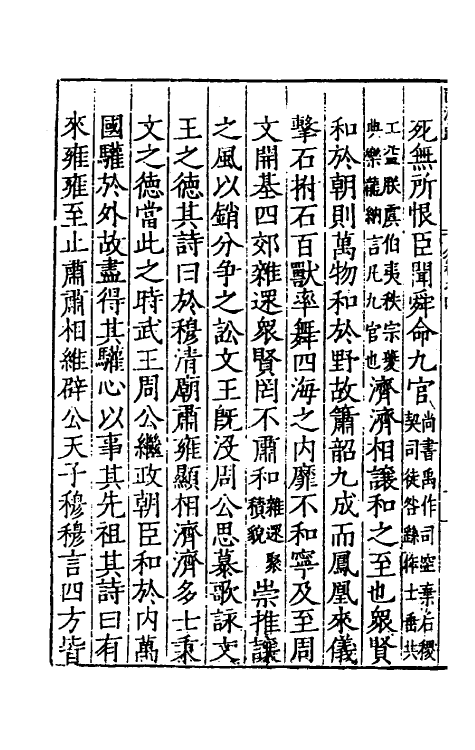 死無所恨臣聞舜命九官尚書禹作司空棄后稷契司徒咎繇作士垂共
工益朕虞伯夷秩宗夔典樂龍納言凡九官也濟濟相讓和之至也衆賢
和於朝則萬物和於野故簫韶九成而鳳凰來儀
擊石拊石百獸率舞四海之内靡不和寧及至周
文開基四郊雜遝衆賢罔不肅和雜遝聚積貌崇推讓
之風以銷分争之訟文王旣没周公思慕歌詠文
王之德其詩曰於穆清廟肅雍顯相濟濟多士秉
文之德當此之時武王周公繼政朝臣和於内萬
國驩於外故盡得其驩心以事其先祖其詩曰有
來雍雍至止肅肅相維辟公天子穆穆言四方皆